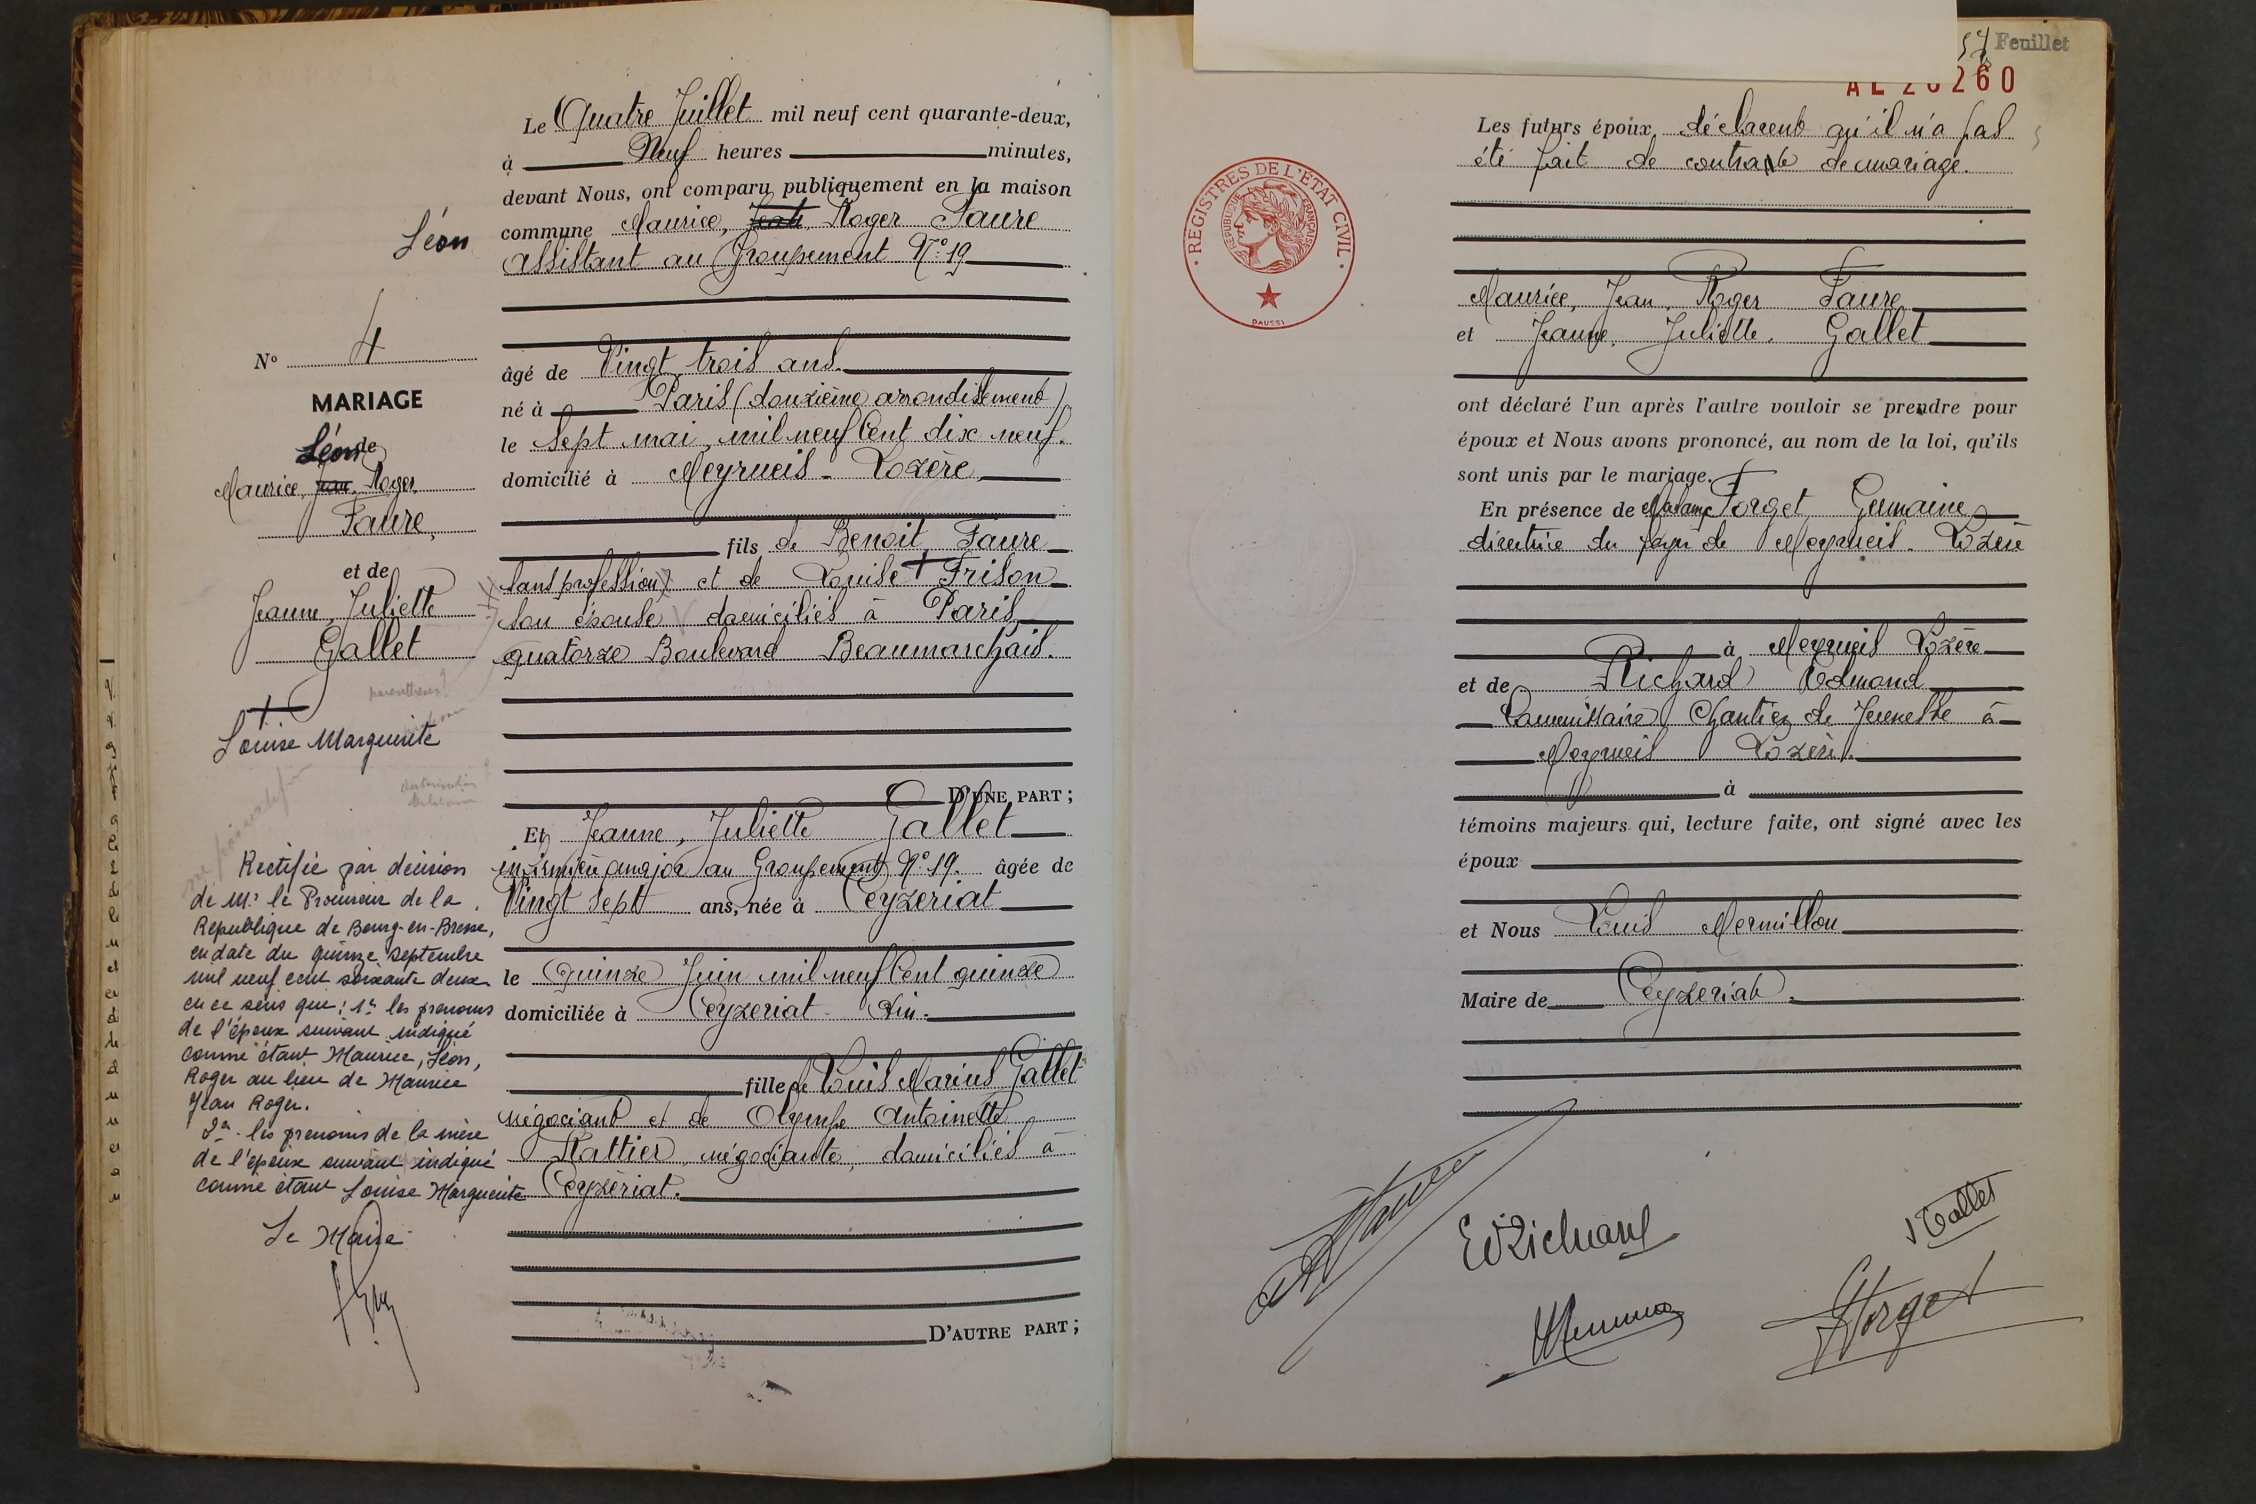 Le Quatre Juillet mil neuf cent quarante-deux,
à Neuf heures minutes,
devant Nous, ont comparu publiquement en la maison
commune Maurice, Jean Roger Faure
Léon
assistant au Groupement N° 19
N° 4
MARIAGE
Léon de
Maurice, Jean, Roger
Faure,
et de
Jeanne, Juliette
Gallet
Louise Marguerite
âgé de Vingt trois ans.
né à Paris (douzième arrondissement)
le Sept mai, mil neuf Cent dix neuf.
domicilié à Meyrueis - Lozère
fils de Benoit Faure
sans profession et de Louise + Frison
son épouse domiciliés à Paris
quatorze Boulevard Beaumarchais.
D'UNE PART ;
Et Jeanne, Juliette Gallet
infirmière major au Groupement N° 19. âgée de
Vingt Sept ans, née à Ceyzeriat
le Quinze Juin mil neuf Cent quinze
domiciliée à Ceyzeriat - Ain.
fille de Louis Marius Gallet
négociant et de Olympe Antoinette
Rattier négociante, domiciliés à
Ceyzériat.
D'AUTRE PART ;
Rectifié par décision
de Mr le Procureur de la
Republique de Bourg-en-Bresse,
en date du quinze septembre
mil neuf cent soixante deux
en ce sens que : 1° les prenoms
de l'époux suivant indiqué
comme étant Maurice, Léon,
Roger au lieu de Maurice
Jean Roger.
2° - les prenoms de la mère
de l'époux suivant indiqué
comme étant Louise Marguerite
Le Maire
57 Feuillet
AL 20260
REGISTRES DE L'ETAT CIVIL
REPUBLIQUE FRANÇAISE
DAUSSI
Les futurs époux déclarent qu'il n'a pas
été fait de contrat de mariage.
Maurice, Jean, Roger Faure
et Jeanne, Juliette, Gallet
ont déclaré l'un après l'autre vouloir se prendre pour
époux et Nous avons prononcé, au nom de la loi, qu'ils
sont unis par le mariage.
En présence de Madame Forget Germaine
directrice du foyer de Meyrueis - Lozère
à Meyrueis Lozère
et de Richard Edmond
Commissaire Chantier de Jeunesse à
Meyrueis Lozère.
à
témoins majeurs qui, lecture faite, ont signé avec les
époux
et Nous Louis Mermillon
Maire de Ceyzeriat.
Faure
Ed Richard
J Gallet
Forget